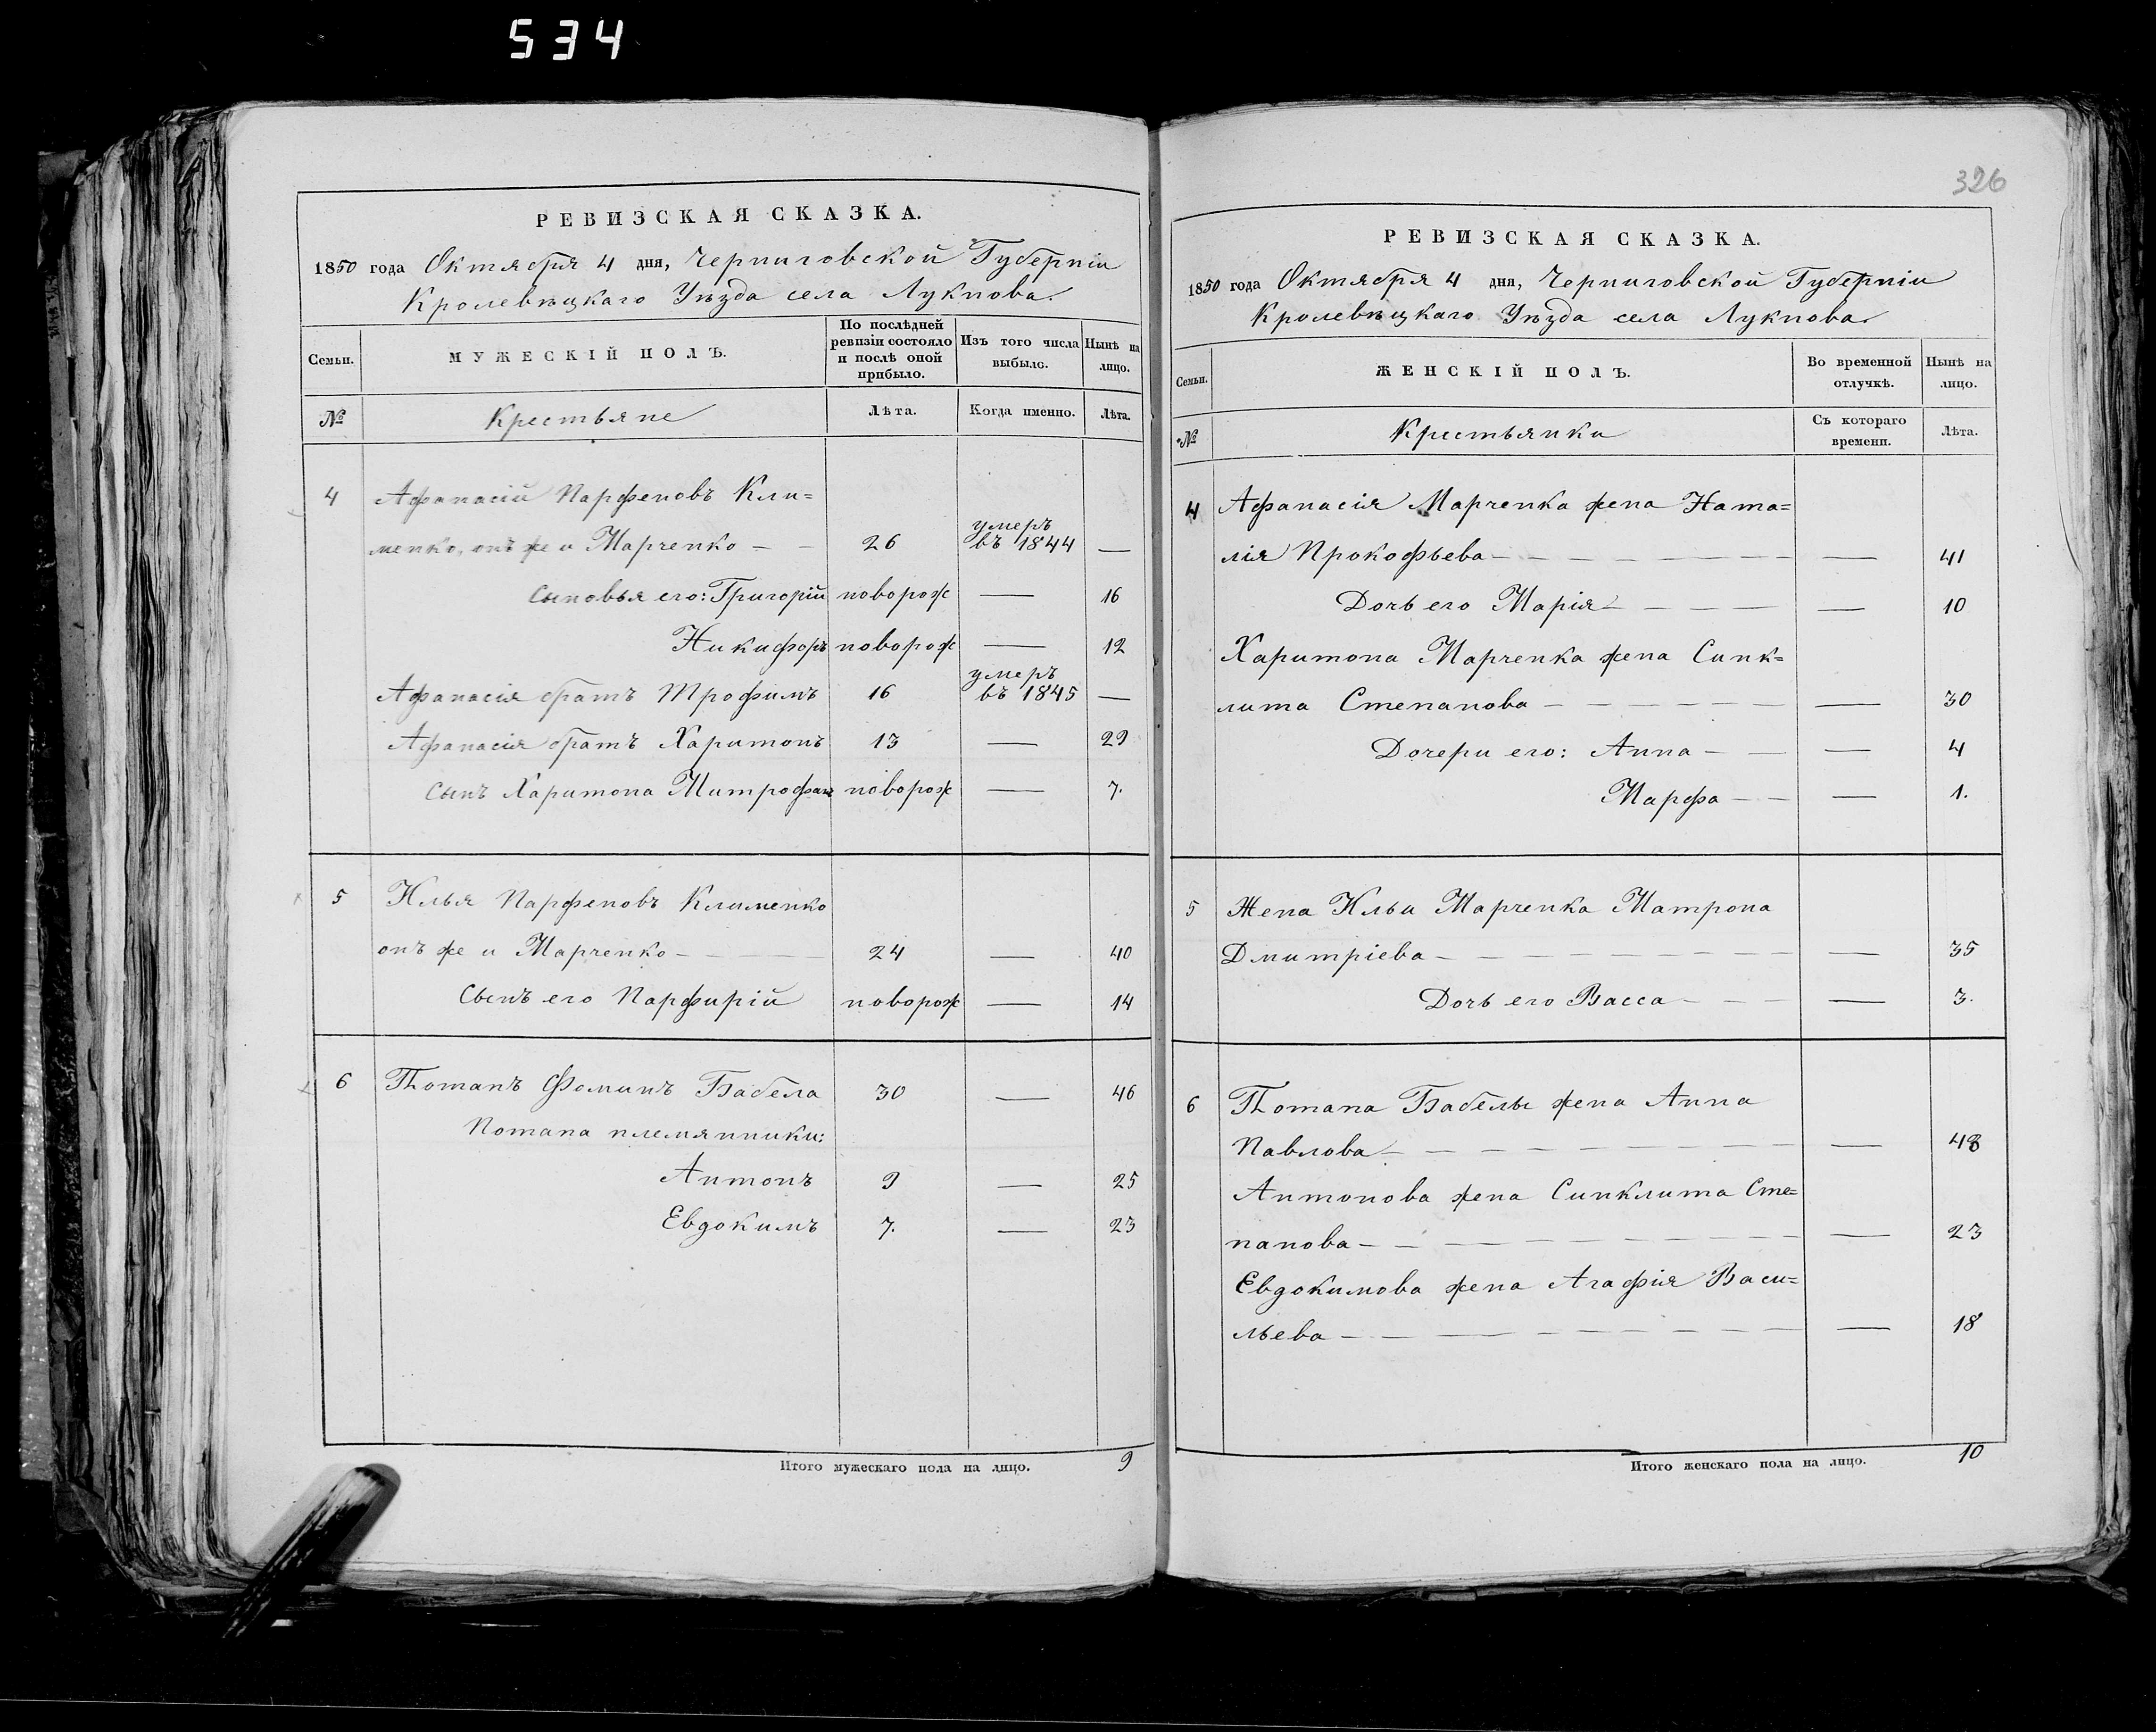 534
РЕВИЗСКАЯ СКАЗКА.
1850 года Октября 4 дня, Черниговской Губерніи
Кролевѣцкаго Уѣзда села Лукнова.
Семьи.
МУЖЕСКІЙ ПОЛЪ.
По послѣдней
ревизіи состояло
и послѣ оной
прибыло.
Изъ того числа
выбыло.
Нынѣ на
лицо.
№
Крестьяне
Лѣта.
Когда именно.
Лѣта.
4 Афанасій Парфеновъ Кли=
менко, онъ же и Марченко — — 26 умеръ въ 1844 —
Сыновья его: Григорій новорож — 16
Никифоръ новорож — 12
Афанасія братъ Трофимъ 16 умеръ въ 1845 —
Афанасія братъ Харитонъ 13 — 29
Сынъ Харитона Митрофанъ новорож — 7.
5 Илья Парфеновъ Клименко
онъ же и Марченко — — — 24 — 40
Сынъ его Парфирій новорож — 14
6 Потапъ Фоминъ Бабела 30 — 46
Потапа племянники:
Антонъ 9 — 25
Евдокимъ 7. — 23
Итого мужескаго пола на лицо. 9
326
РЕВИЗСКАЯ СКАЗКА.
1850 года Октября 4 дня, Черниговской Губерніи
Кролевѣцкаго Уѣзда села Лукнова
Семьи.
ЖЕНСКІЙ ПОЛЪ.
Во временной
отлучкѣ.
Нынѣ на
лицо.
№
Крестьянки
Съ котораго
времени.
Лѣта.
4 Афанасія Марченка жена Ната=
лія Прокофьева — — — — — — — 41
Дочь его Марія — — — — — 10
Харитона Марченка жена Синк=
лита Степанова — — — — — — 30
Дочери его: Анна — — — 4
Марфа — — — 1.
5 Жена Ильи Марченка Матрона
Дмитріева — — — — — — — — 35
Дочь его Васса — — — — 3.
6 Потапа Бабелы жена Анна
Павлова — — — — — — — — 48
Антонова жена Синклита Сте=
панова — — — — — — — — 23
Евдокимова жена Агафія Васи=
льева — — — — — — — — 18
Итого женскаго пола на лицо. 10